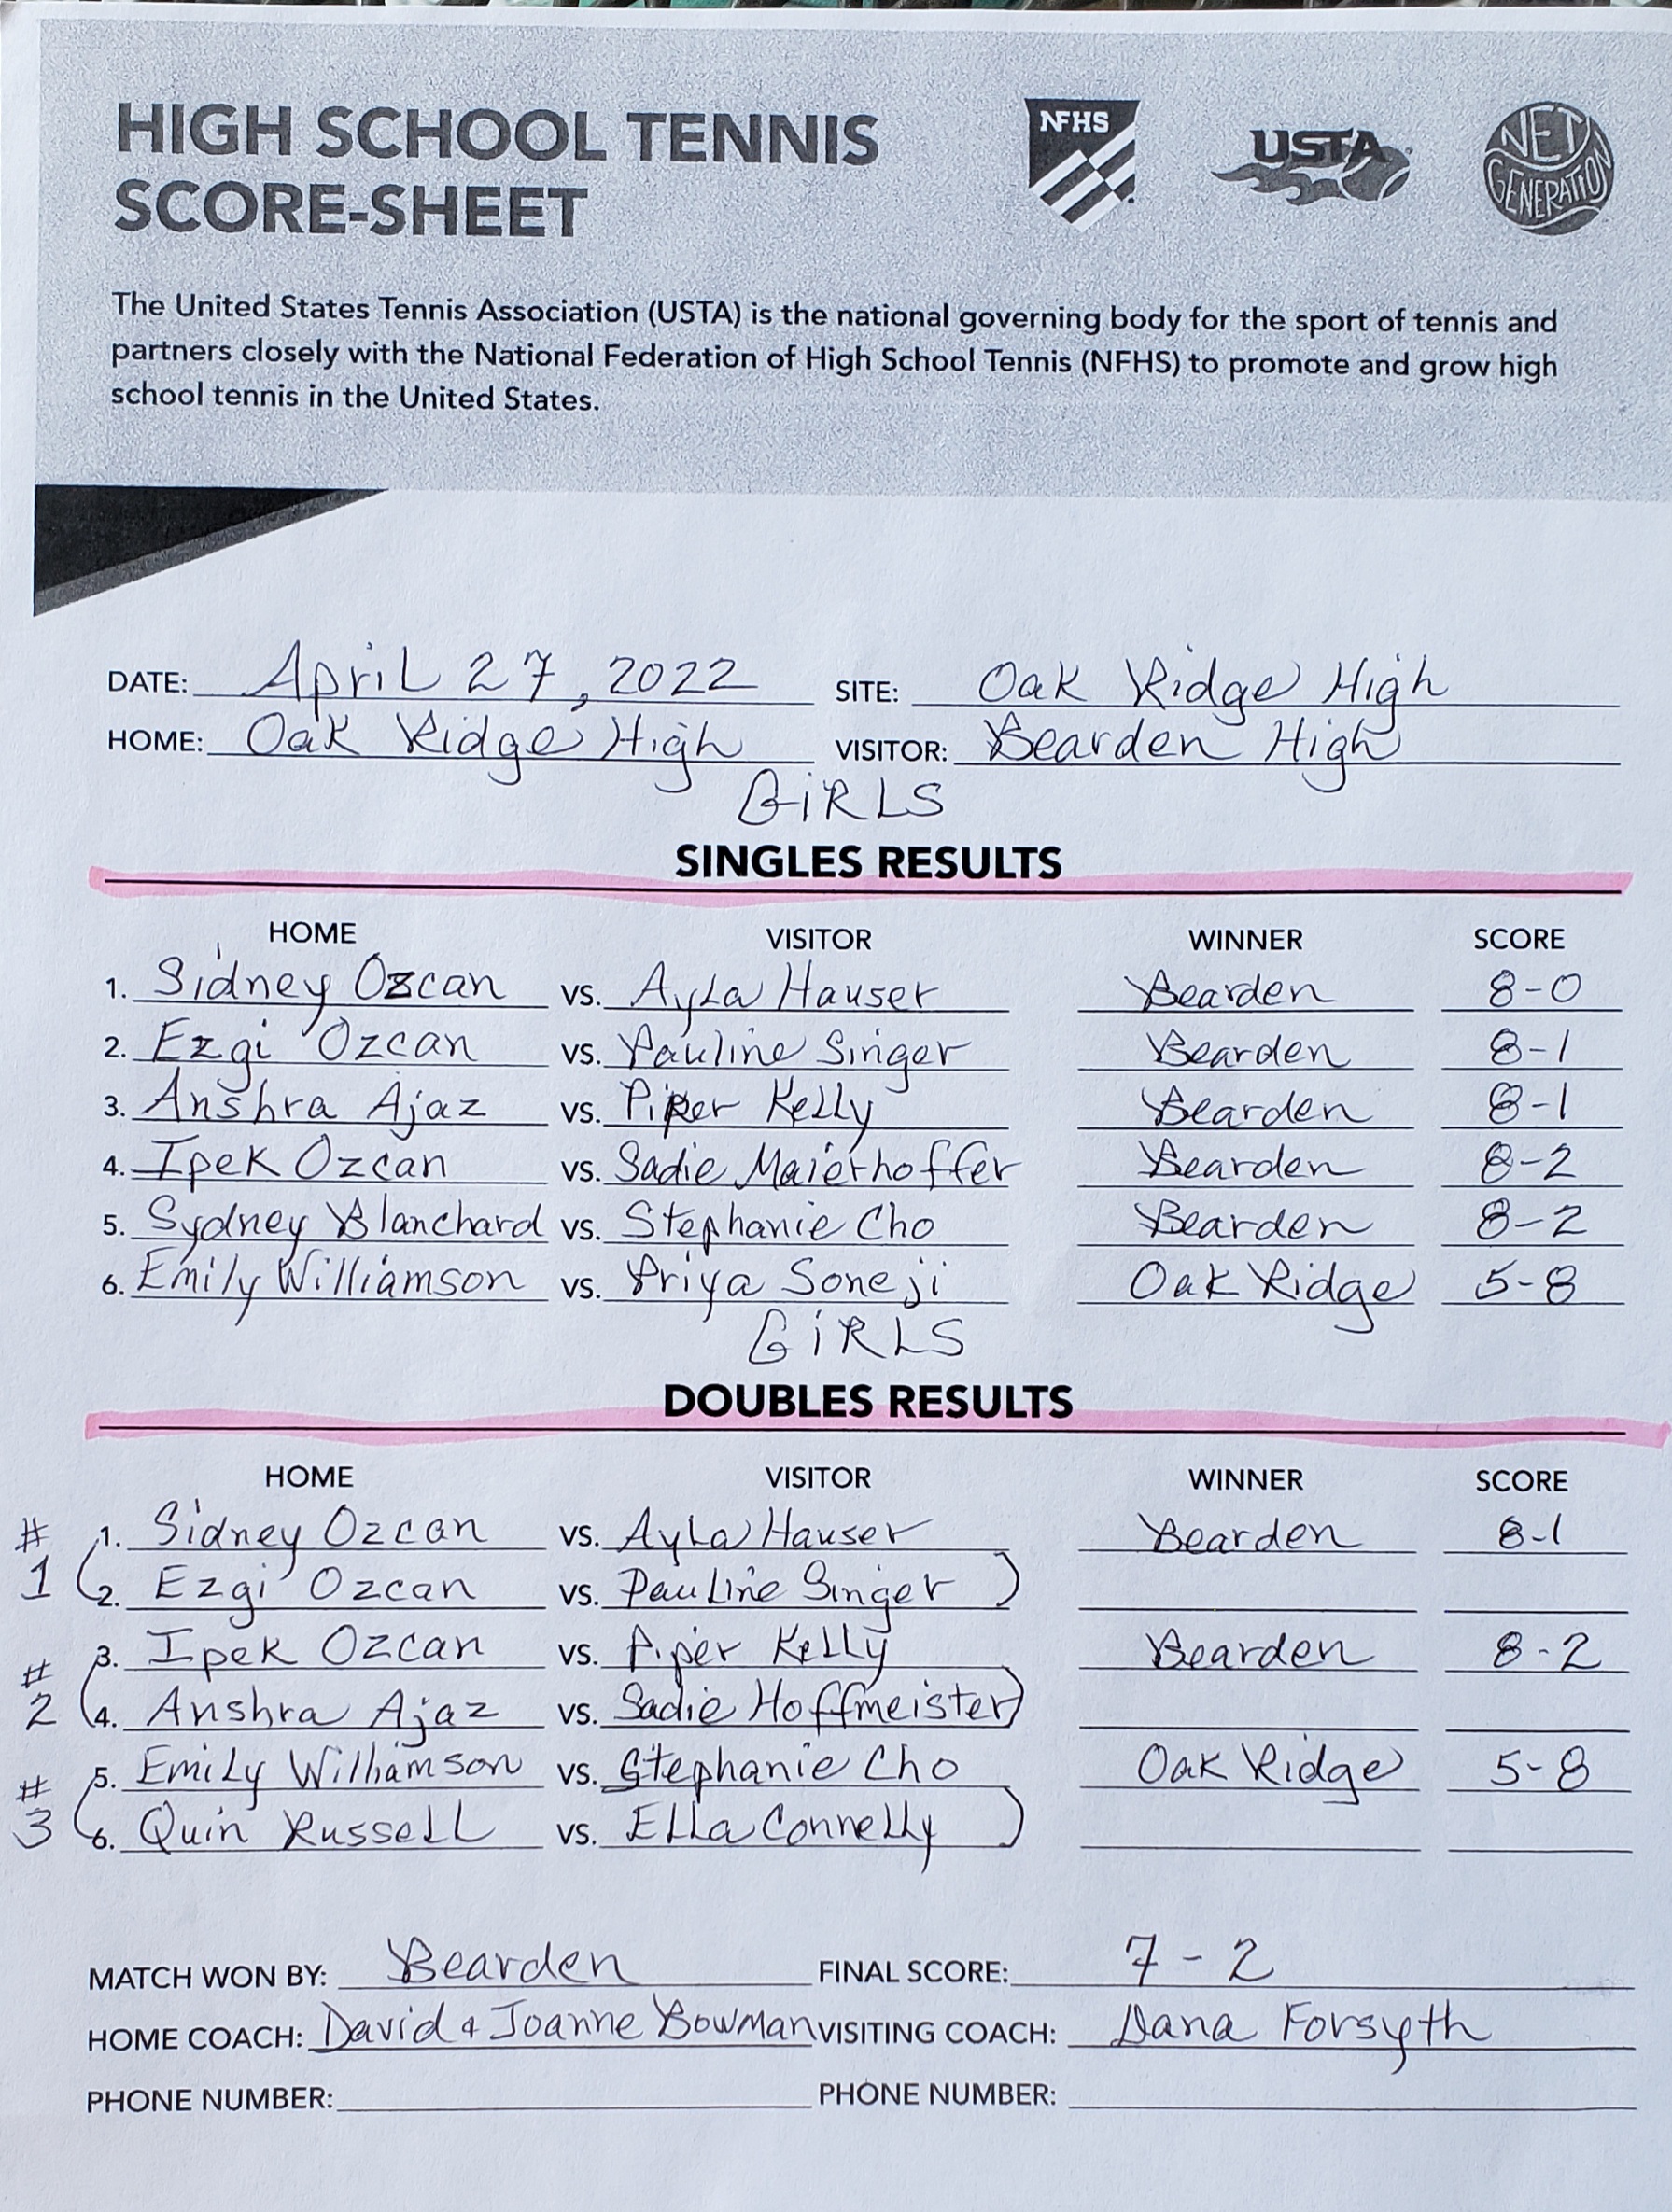 HIGH SCHOOL TENNIS
SCORE-SHEET
NFHS
USTA
NET GENERATION
The United States Tennis Association (USTA) is the national governing body for the sport of tennis and
partners closely with the National Federation of High School Tennis (NFHS) to promote and grow high
school tennis in the United States.
DATE: April 27, 2022 SITE: Oak Ridge High
HOME: Oak Ridge High VISITOR: Bearden High
GIRLS
SINGLES RESULTS
HOME VISITOR WINNER SCORE
1. Sidney Ozcan vs. Ayla Hauser Bearden 8-0
2. Ezgi Ozcan vs. Pauline Singer Bearden 8-1
3. Anshra Ajaz vs. Piper Kelly Bearden 8-1
4. Ipek Ozcan vs. Sadie Maierhoffer Bearden 8-2
5. Sydney Blanchard vs. Stephanie Cho Bearden 8-2
6. Emily Williamson vs. Priya Soneji Oak Ridge 5-8
GIRLS
DOUBLES RESULTS
HOME VISITOR WINNER SCORE
# 1. Sidney Ozcan vs. Ayla Hauser Bearden 8-1
1 (2. Ezgi Ozcan vs. Pauline Singer )
# 3. Ipek Ozcan vs. Piper Kelly Bearden 8-2
2 (4. Anshra Ajaz vs. Sadie Hoffmeister)
# 5. Emily Williamson vs. Stephanie Cho Oak Ridge 5-8
3 (6. Quin Russell vs. Ella Connelly )
MATCH WON BY: Bearden FINAL SCORE: 7-2
HOME COACH: David & Joanne Bowman VISITING COACH: Dana Forsyth
PHONE NUMBER: PHONE NUMBER: